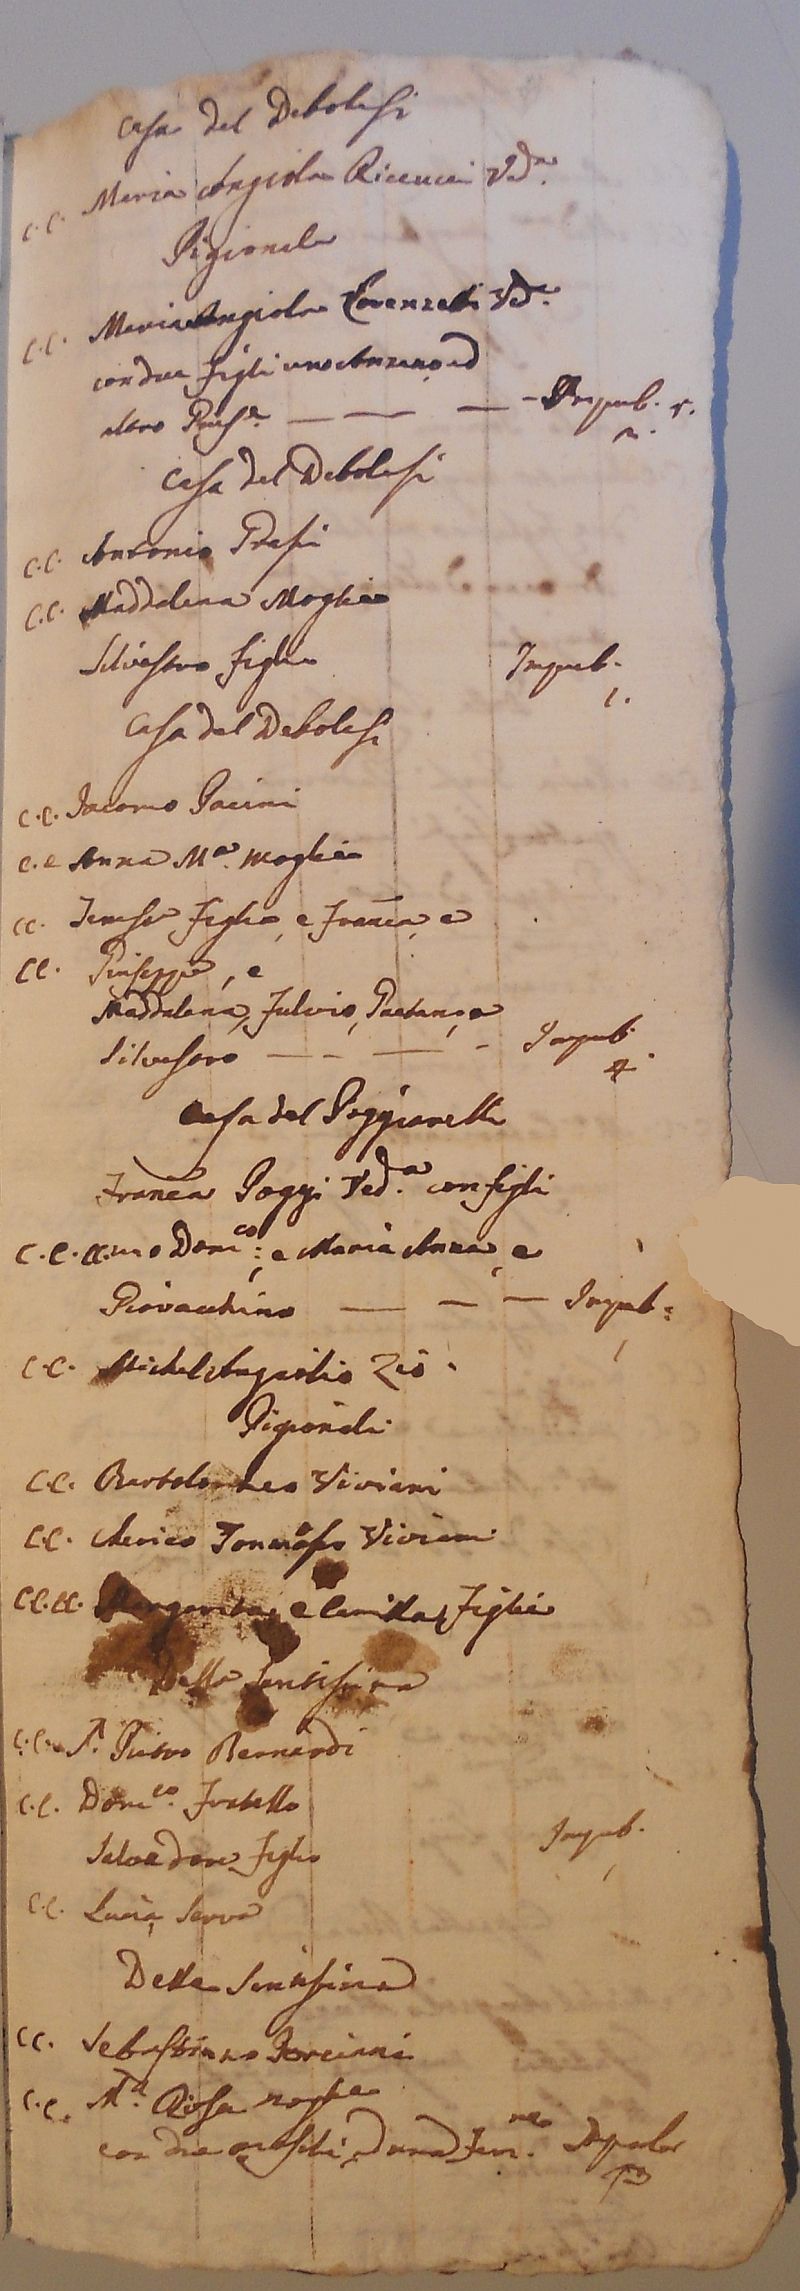 Casa del Debolesi
C.C. Maria Angiola Ricucci Ved.a
Pigionale
C.C. Maria Angiola Lorenzetti Ved.a
con due figli uno Anzano, ed
altro Giuse.e — — — Impub.
Casa del Debolesi
C.C. Antonio Grassi
C.C. Maddalena Moglie
Silvestro figlio Impub.
1.
Casa del Debolesi
C.C. Iacomo Pacini
C.C. Anna M.a moglie
CC. Teresa figlia, e Franca, e
CC. Giuseppe, e
Maddalena, Fulvio, Gaetano, e
Silvestro — — — Impub.
4.
Casa del Poggiarelli
Franca Poggi Ved.a con figli
C.C. CC. Dom.co: e Maria Anna, e
Giovacchino — — — Impub:
1
C.C. Michel Angiolio Zio.
Pigionali
C.C. Bartolomeo Viviani
C.C. Tommaso Viviani
CC. CC. Margarita, e Camilla figlie
Della Sentisina
C.C. P. Pietro Bernardi
C.C. Dom.co Fratello
Salvadore figlio Impub.
1
C.C. Lucia Serva
Della Sentisina
CC. Sebastiano Porciani
C.C. M.a Rosa moglie
con due maschi, ed una Fem.na